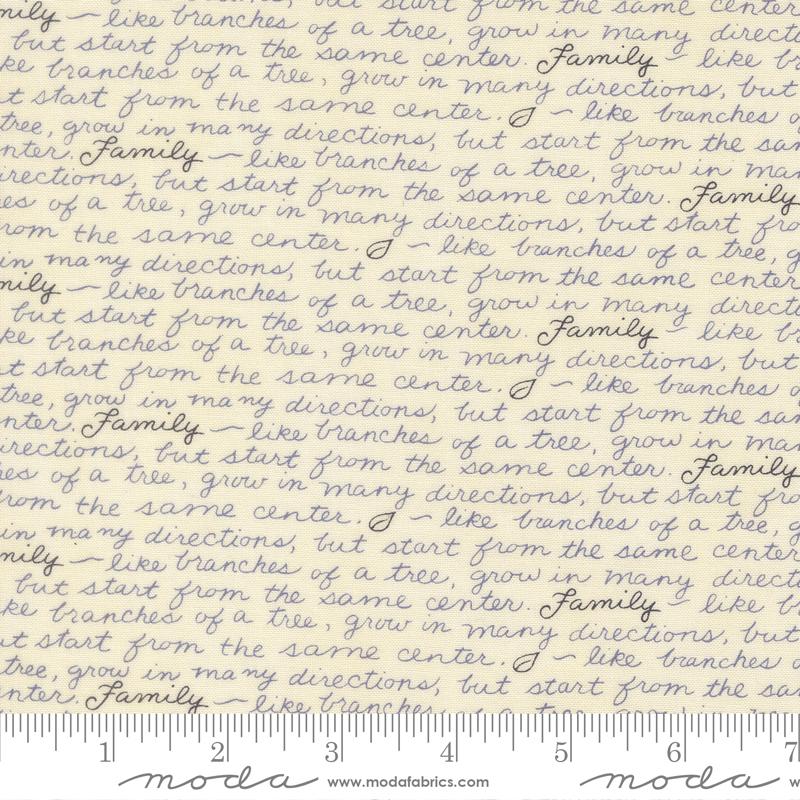 but start from the same center
mily – like branches of a tree, grow in many directi
but start from the same center. Family – like br
ke branches of a tree, grow in many directions, but
t start from the same center. – like branches o
tree, grow in many directions, but start from the sam
nter. Family – like branches of a tree, grow in man
irections, but start from the same center. Family
es of a tree, grow in many directions, but start fro
rom the same center. – like branches of a tree, g
in many directions, but start from the same center
mily – like branches of a tree, grow in many directi
but start from the same center. Family – like br
ke branches of a tree, grow in many directions, but
t start from the same center. – like branches o
tree, grow in many directions, but start from the sam
nter. Family – like branches of a tree, grow in man
irections, but start from the same center. Family
hes of a tree, grow in many directions, but start fro
rom the same center. – like branches of a tree, g
in many directions, but start from the same center
mily – like branches of a tree, grow in many directi
but start from the same center. Family – like br
ke branches of a tree, grow in many directions, but
ut start from the same center. – like branches o
tree, grow in many directions, but start from the sa
nter. Family – like branches
1 2 3 4 5 6 7
moda www.modafabrics.com moda w